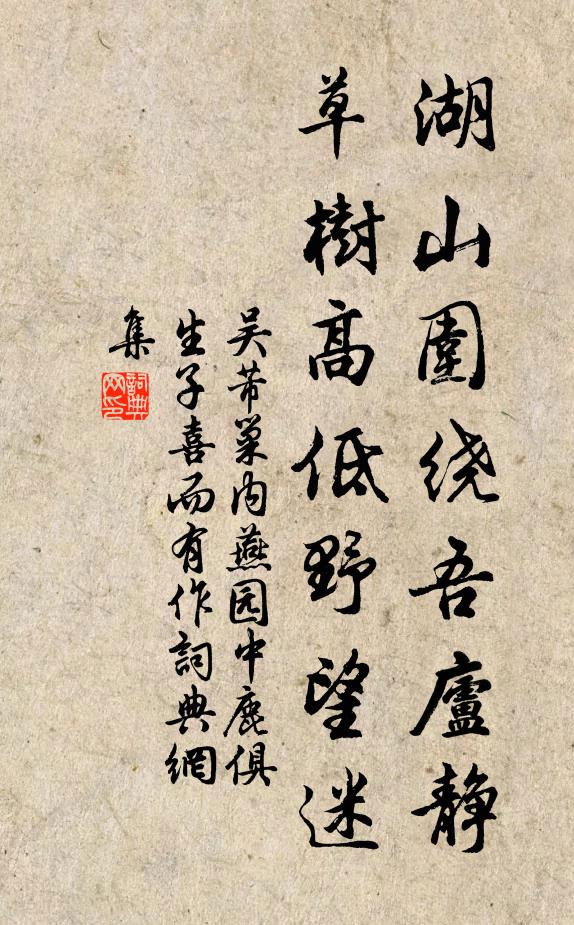 湖山圍绕吾廬静
草樹高低野望迷
吴芾巢内燕园中鹿俱
生子喜而有作詞典網
集
詞典
网印